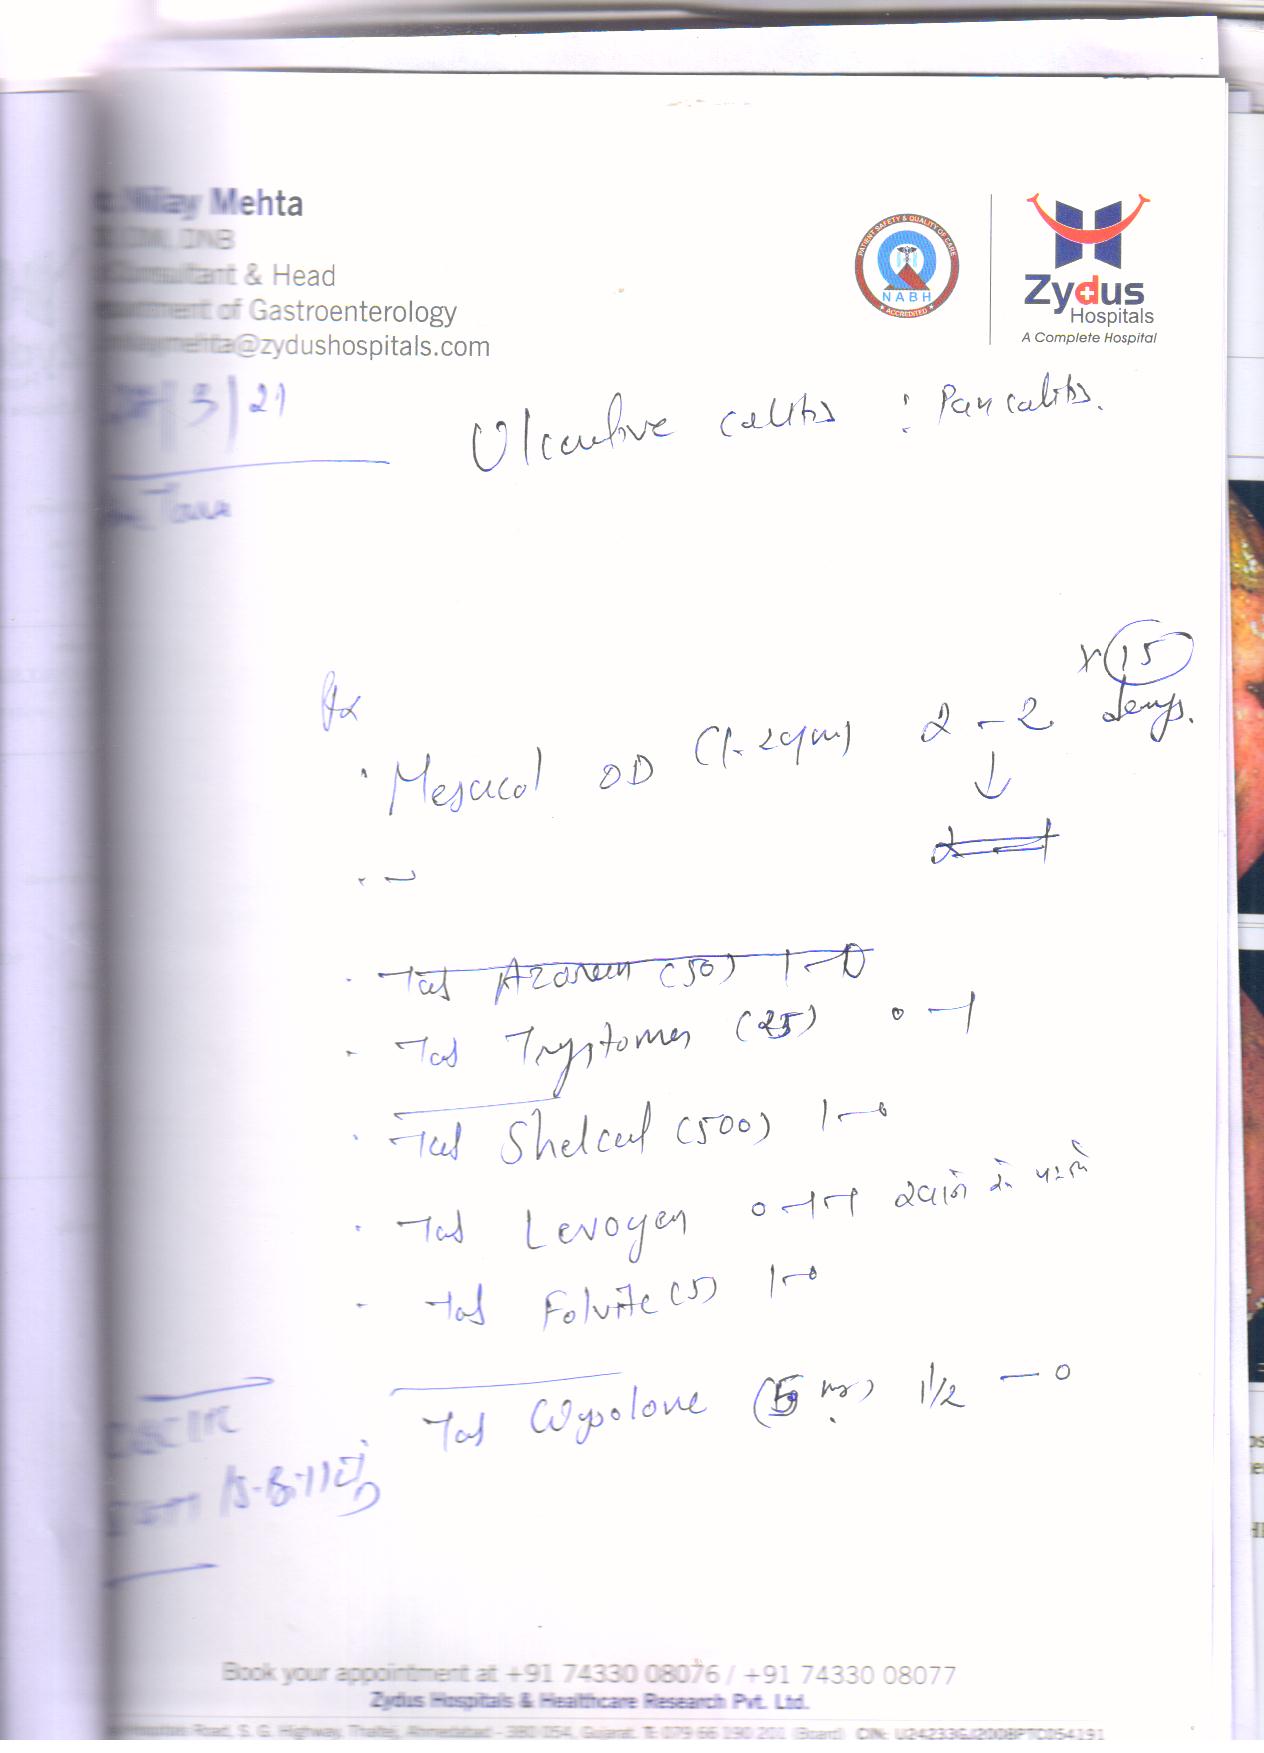 Nilay Mehta
DM, DNB
Consultant & Head
Department of Gastroenterology
nilaymehta@zydushospitals.com
PATIENT SAFETY & QUALITY OF CARE
NABH
ACCREDITED
Zydus
Hospitals
A Complete Hospital
/3/21
Ulcerative colitis : Pancolitis.
Rx
x 15 days.
Mesacol OD (1.2gm) 2 - 2
↓
2 - 1
Tab Azoran (50) 1-0
Tab Tryptomer (25) 0-1
Tab Shelcal (500) 1-0
Tab Levogen 0-1-1
Tab Folvite (5) 1-0
Tab Wysolone (5 mg) 1 1/2 - 0
Book your appointment at +91 74330 08076 / +91 74330 08077
Zydus Hospitals & Healthcare Research Pvt. Ltd.
Road, S. G. Highway, Thaltej, Ahmedabad - 380 054, Gujarat. T: 079 66 190 201 (Board) CIN: U24233GJ2008PTC054191